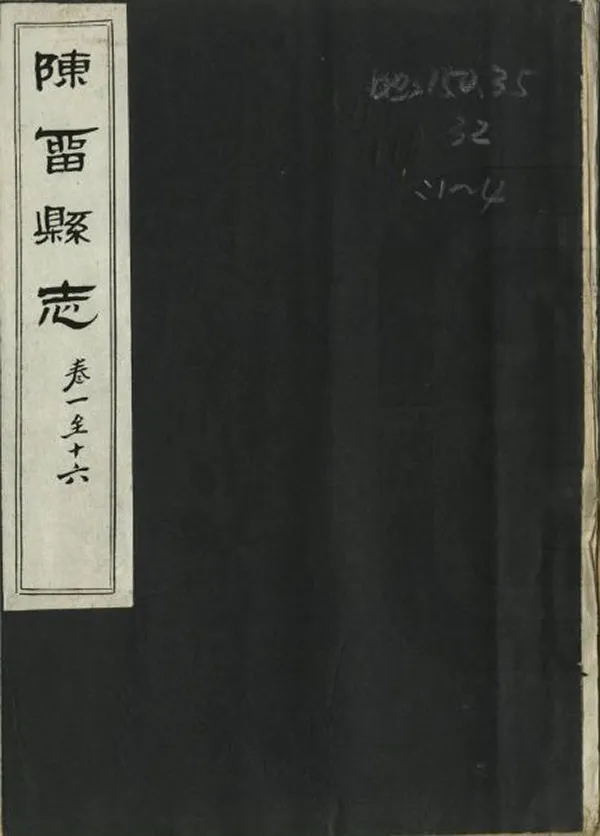 陳留縣志
卷一至十六
地150.35
32
:1~4